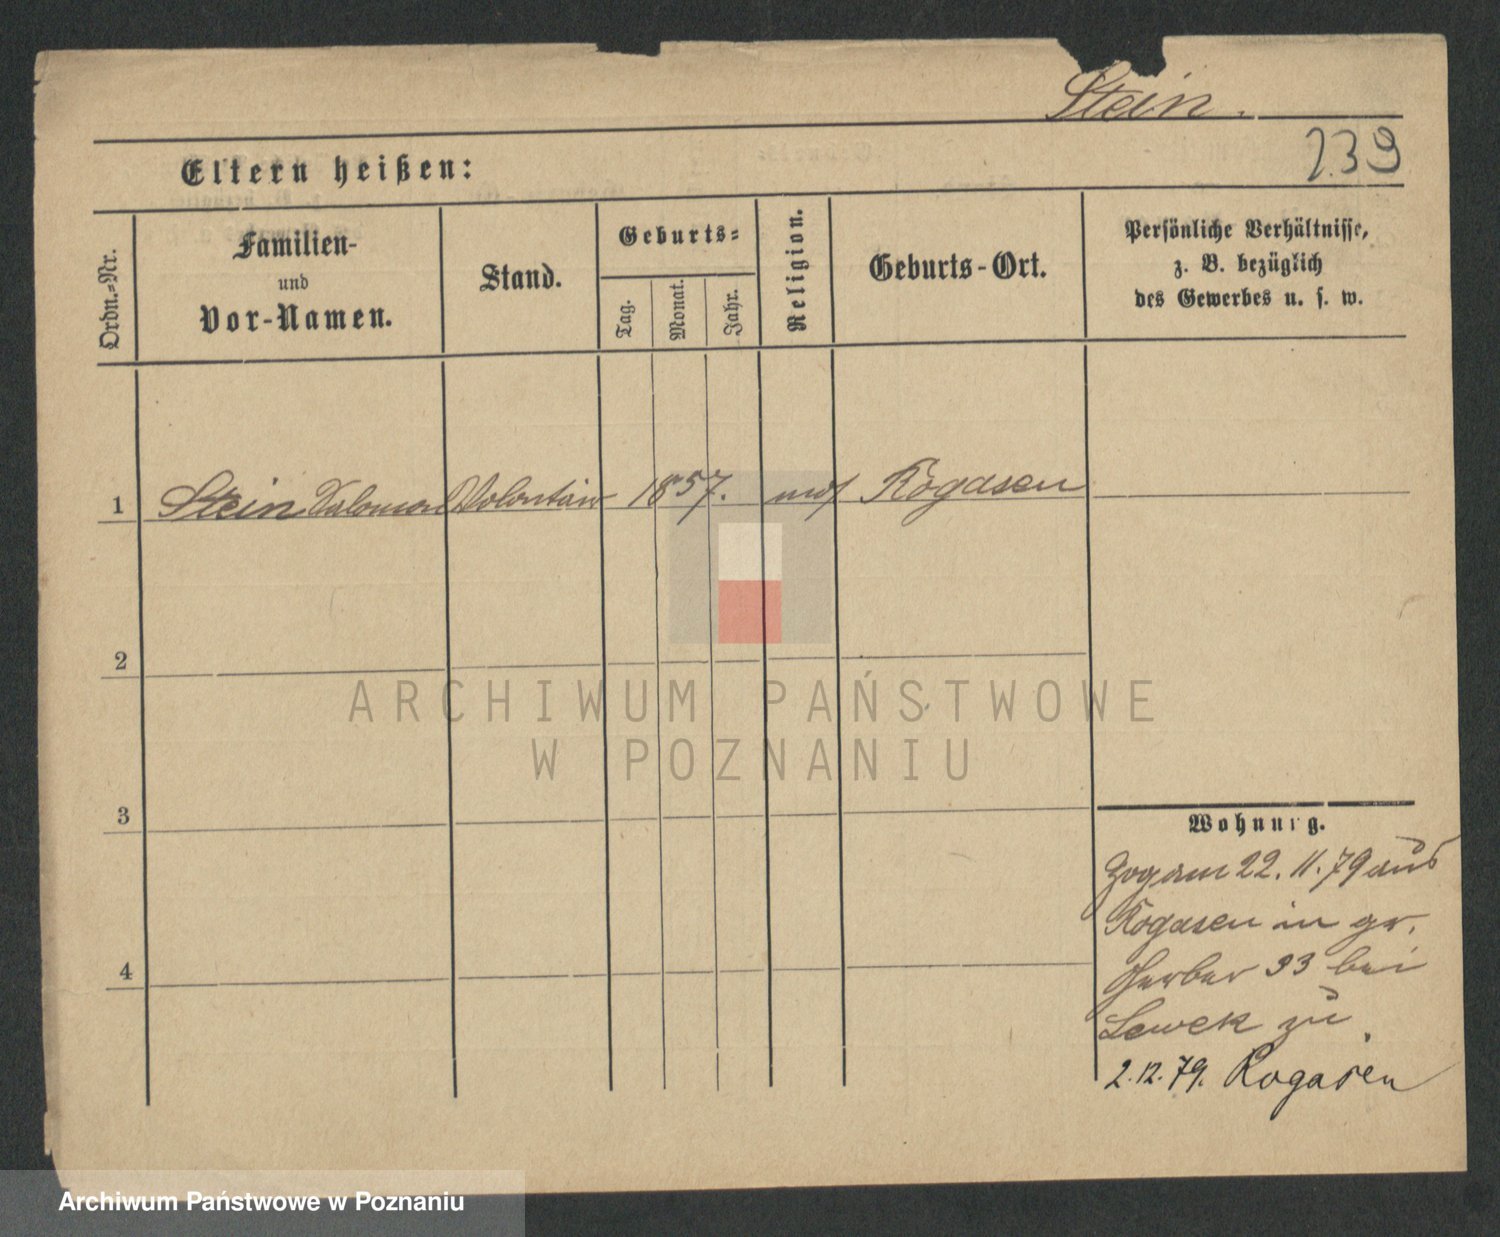 Stein.
239
Eltern heißen:
Ordn.-Nr.
Familien-
und
Vor-Namen.
Stand.
Geburts-
Tag.
Monat.
Jahr.
Religion.
Geburts-Ort.
Persönliche Verhältnisse,
z. B. bezüglich
des Gewerbes u. s. w.
1 Stein Salomon Volontair 1857. mos Rogasen
2
3
4
Wohnung.
Zog am 22. 11. 79 aus
Rogasen in gr.
Gerber 33 bei
Lewek zu
2.12.79. Rogasen
ARCHIWUM PAŃSTWOWE
W POZNANIU
Archiwum Państwowe w Poznaniu